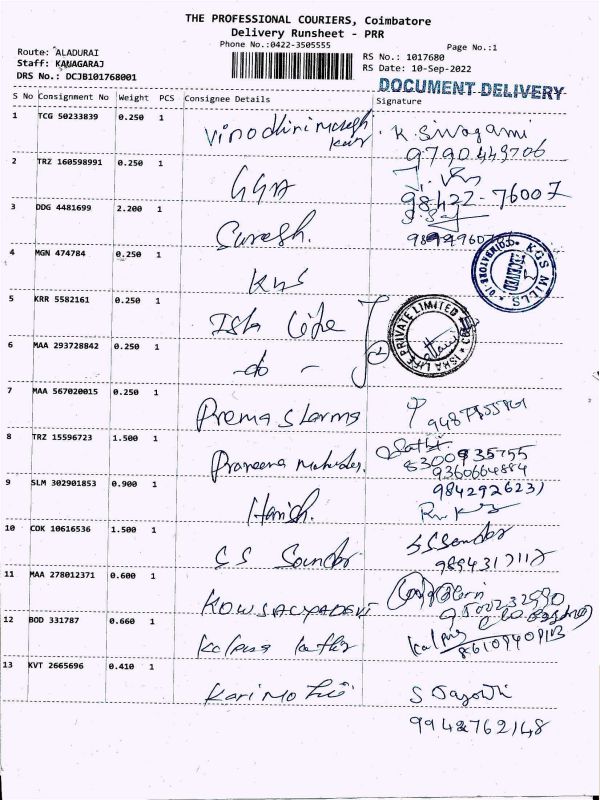 THE PROFESSIONAL COURIERS, Coimbatore
Delivery Runsheet - PRR
Phone No.:0422-3505555
Page No.:1
Route: ALADURAI
Staff: KANAGARAJ
DRS No.: DCJB101768001
RS No.: 1017680
RS Date: 10-Sep-2022
DOCUMENT DELIVERY
S No Consignment No Weight PCS Consignee Details Signature
1 TCG 50233839 0.250 1 K. Sivagami
9790449706
2 TRZ 160598991 0.250 1 GGA
98422-76007
3 DDG 4481699 2.200 1 Suresh.
4 MGN 474784 0.250 1 KGS
KGS MILLS COIMBATORE RECEIVED
5 KRR 5582161 0.250 1 Isha Life
ISHA LIFE PRIVATE LIMITED
6 MAA 293728842 0.250 1 -do-
7 MAA 567020015 0.250 1 Prema Sharma
8 TRZ 15596723 1.500 1 Praneena
8300935755
9360664884
9 SLM 302901853 0.900 1 Harish.
9842926231
10 COK 10616536 1.500 1 SS Sundar SSSundar
11 MAA 278012371 0.600 1 KOWSALYADEVI
12 BOD 331787 0.660 1 Kalpana Kalpa
13 KVT 2665696 0.410 1 S
9942762148